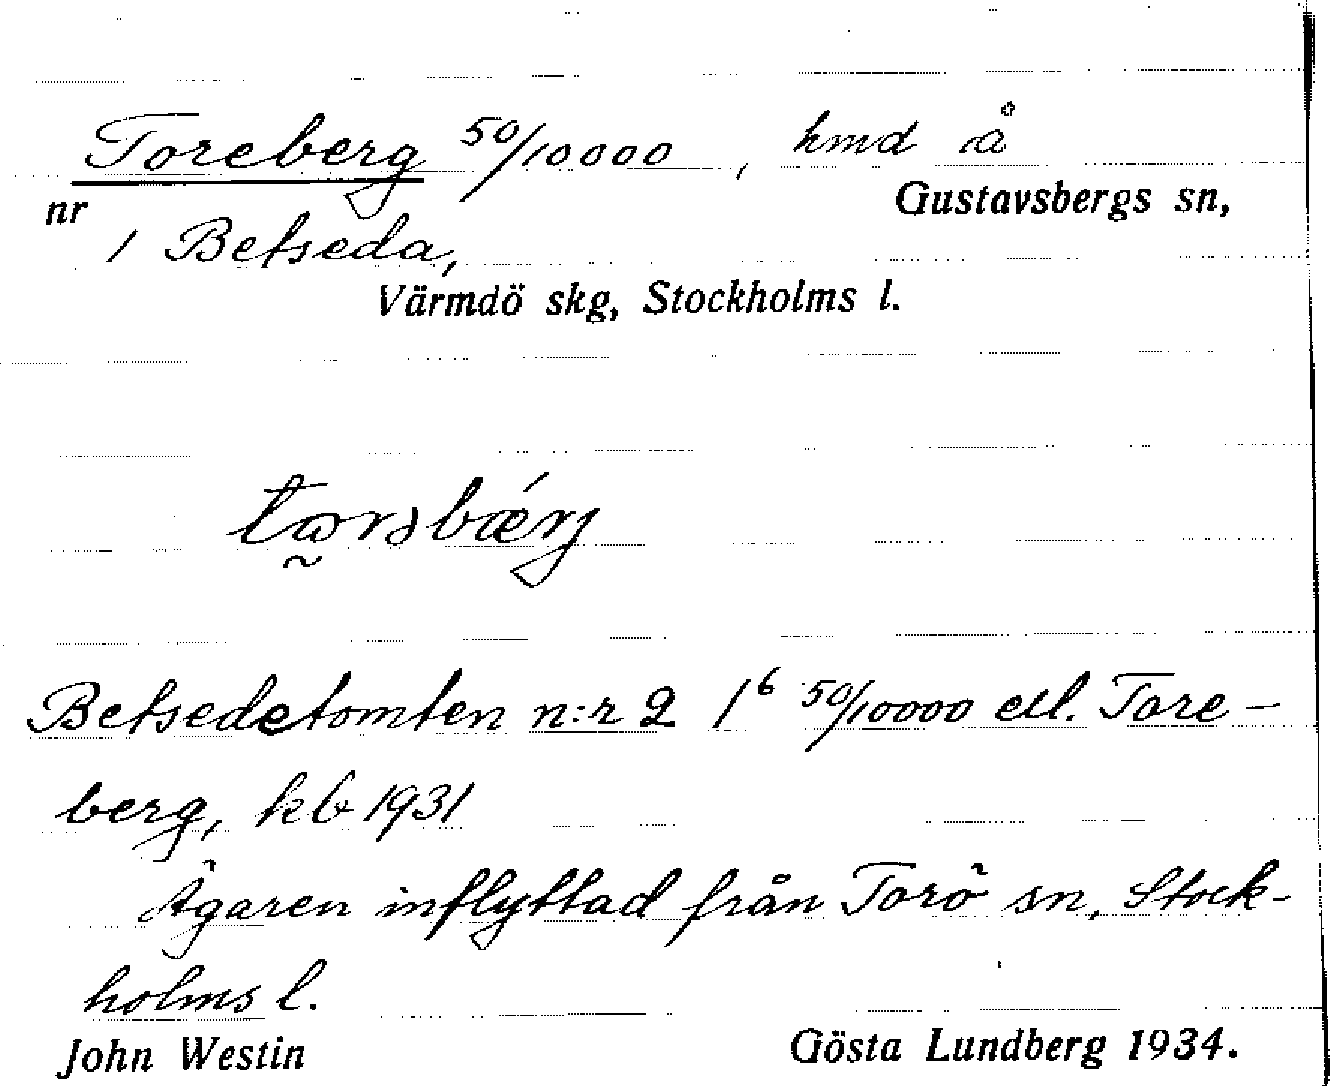 Toreberg 50/10000, hmd å
Gustavsbergs sn,
nr 1 Betseda,
Värmdö skg, Stockholms l.
Betsedetomten n:r 2 1⁶ 50/10000 ell. Tore-
berg, kb 1931
Ägaren inflyttad från Torö sn, Stock-
holms l.
John Westin Gösta Lundberg 1934.